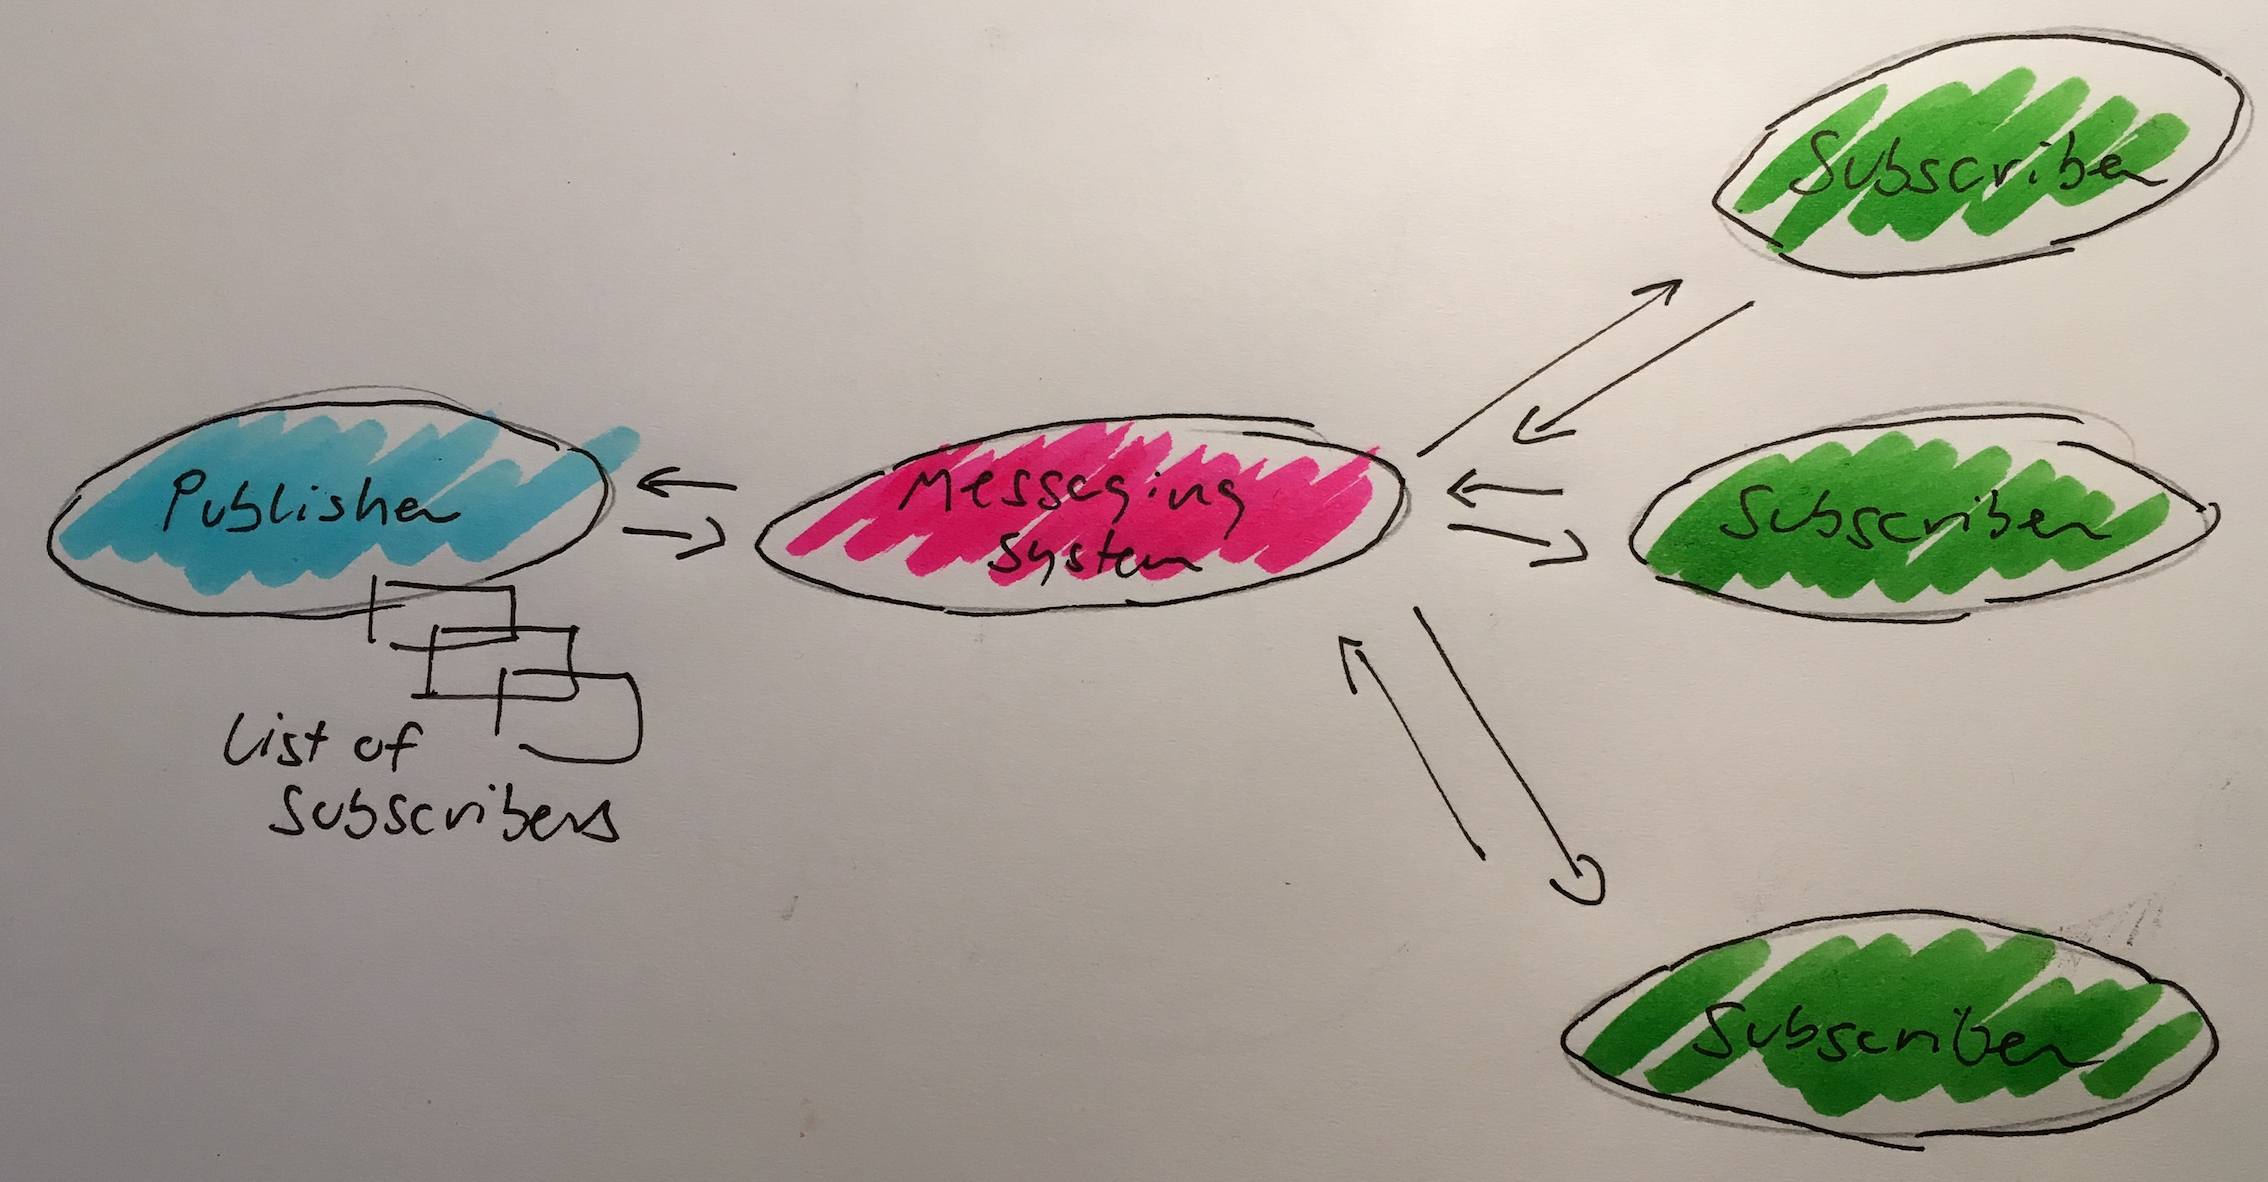 Subscriber
Publisher
Messaging
System
Subscriber
List of
Subscribers
Subscriber